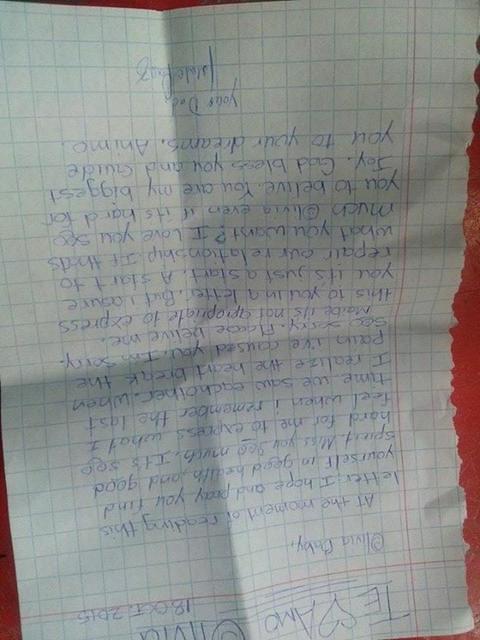 Olivia
18 OCT. 2015
TE AMO
Olivia Baby,
At the moment of reading this
letter. I hope and pray you find
yourself in good health, and good
spirit. Miss you soo much. Its soo
hard for me to express what I
feel when i remember the last
time we saw eachother. When
I realize the heart break the
pain i've caused you. I'm sorry
soo sorry. Please belive me.
Maibe its not apropiate to express
this to you in a letter. But i asure
you it's just a start. A start to
repair our relationship. If thats
what you want? I Love you soo
much Olivia even if its hard for
you to belive. You are my biggest
Joy. God bless you and Guide
you to your dreams. Animo.
your Dad